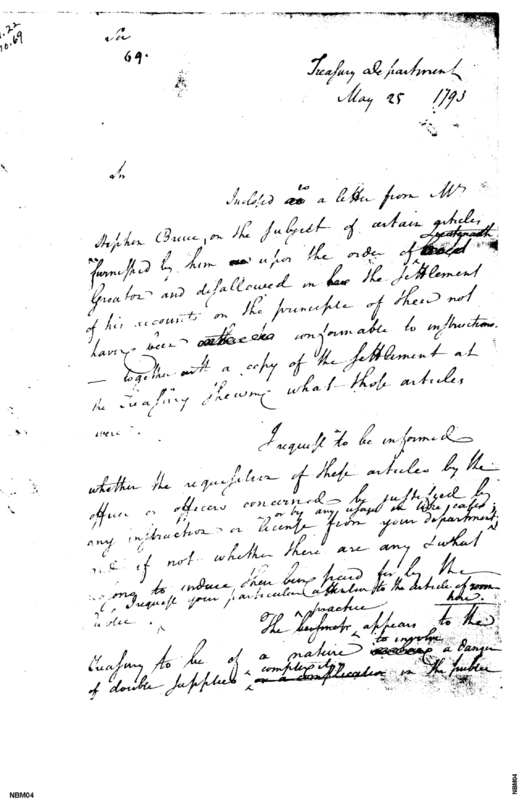 69.
Treasury Department
May 25 1793
Sir
Inclosed is a letter from Mr
Stephen Bruce, on the subject of certain articles
furnished by him upon the order of Lieutenant
Greaton and disallowed in the Settlement
of his accounts on the principle of their not
having been conformable to instructions.
— together with a copy of the Settlement at
the Treasury shewing what those articles
were.
I request to be informed
whether the requisition of these articles by the
officer or officers concerned be justified by
or by any usage in like cases
any instruction or license from your department,
and if not whether there are any & what
reasons to induce their being paid for by the
I request your particular attention to the article of room
hire.
practice
The business appears to the
Treasury to be of a nature to involve a danger
of double supplies complexity or a complication in the public
NBM04
NBM04